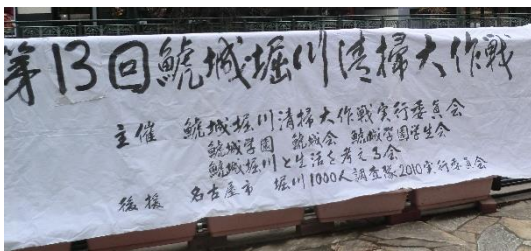 第13回鯱城・堀川清掃大作戦
主催 鯱城堀川清掃大作戦実行委員会
鯱城学園 鯱城会 鯱城学園学生会
鯱城堀川と生活を考える会
後援 名古屋市 堀川1000人調査隊2010実行委員会